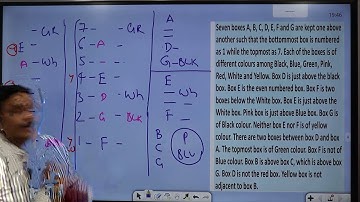 15:46
Seven boxes A, B, C, D, E, F and G are kept one above
another such that the bottommost box is numbered
as 1 while the topmost as 7. Each of the boxes is of
different colours among Black, Blue, Green, Pink,
Red, White and Yellow. Box D is just above the black
box. Box E is the even numbered box. Box F is two
boxes below the White box. Box E is just above the
White box. Pink box is just above Blue box. Box G is
of Black colour. Neither box E nor F is of yellow
colour. There are two boxes between box D and box
A. The topmost box is of Green colour. Box F is not of
Blue colour. Box B is above box C, which is above box
G. Box D is not the red box. Yellow box is not
adjacent to box B.
- GR
E -
A - Wh
7 - - GR
6 - A -
5 - -
4 - E -
3 - D - Wh
2 - G - BLK
1 - F -
A
D -
G - BLK
E
- Wh
F -
B
C
G
P
BLU